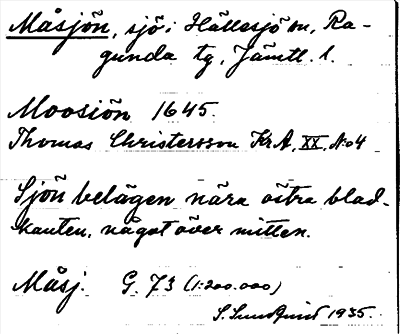 Måsjön, sjö i Hällesjö sn, Ra-
gunda tg, Jämtl. l.
Moosiön 1645.
Thomas Christersson KrA, XX, No 4
Sjön belägen nära östra blad-
kanten, något över mitten.
Måsj. G. 73 (1:200.000)
S. Lundquist 1935.